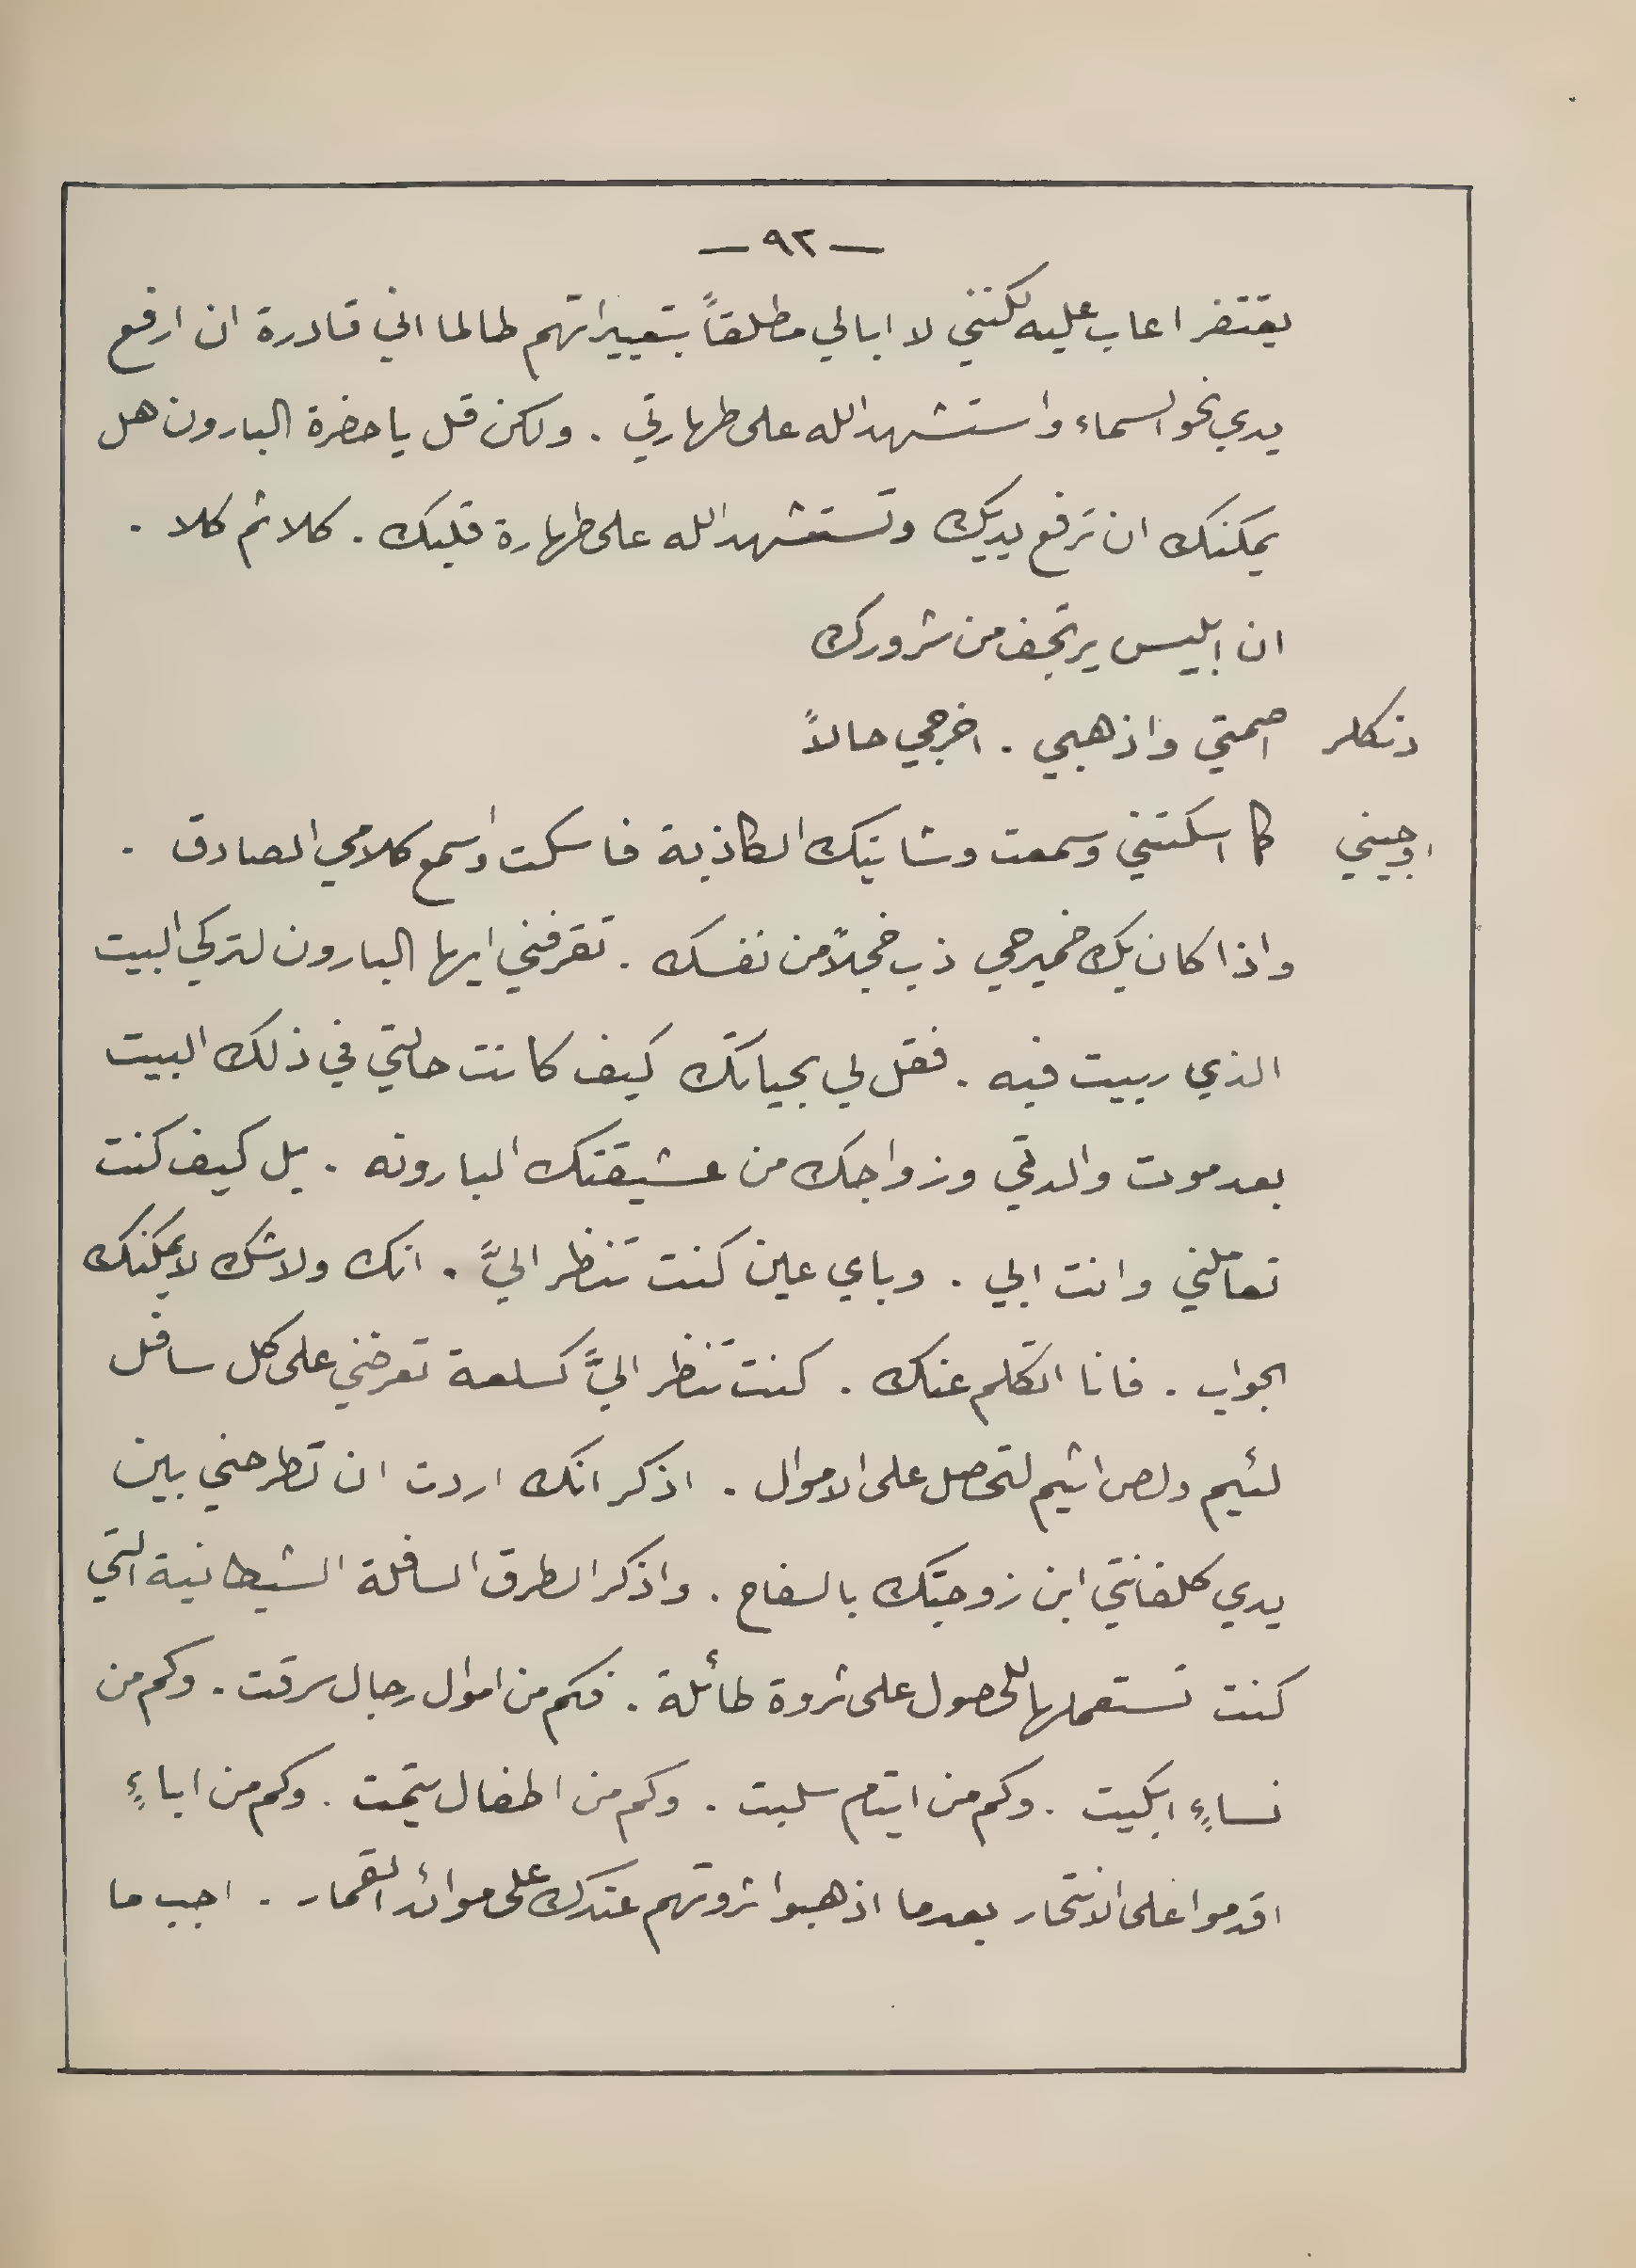 — ٩٢ —
يقتفر اعاب عليه لكنني لا ابالي مطلقاً بتعييراتهم طالما اني قادرة ان ارفع
يدي نحو السماء واستشهد الله على طهارتي . ولكن قل يا حضرة البارون هل
يمكنك ان ترفع يديك وتستشهد الله على طهارة قلبك . كلا ثم كلا .
ان ابليس يرتجف من شرورك
دنكلر اصمتي واذهبي . اخرجي حالاً
اوجيني كما اسكتتني وسمعت وشايتك الكاذبة فاسكت واسمع كلامي الصادق .
واذا كان بك ضمير حي ذب خجلاً من نفسك . تقرفني ايها البارون لتركي البيت
الذي ربيت فيه . فقل لي بحياتك كيف كانت حالتي في ذلك البيت
بعد موت والدتي وزواجك من عشيقتك البارونه . بل كيف كنت
تعاملني وانت ابي . وباي عين كنت تنظر اليَّ . انك ولا شك لا يمكنك
الجواب . فانا اتكلم عنك . كنت تنظر اليَّ كسلعة تعرضني على كل سافل
لئيم ولص اثيم لتحصل على الاموال . اذكر انك اردت ان تطرحني بين
يدي كلفانتي ابن زوجتك بالسفاح . واذكر الطرق السافلة الشيطانية التي
كنت تستعملها للحصول على ثروة طائلة . فكم من اموال رجال سرقت . وكم من
نساءٍ ابكيت . وكم من ايتام سلبت . وكم من اطفال يتمت . وكم من اباءٍ
اقدموا على الانتحار بعدما اذهبوا ثروتهم عندك على موائد القمار . اجب ما